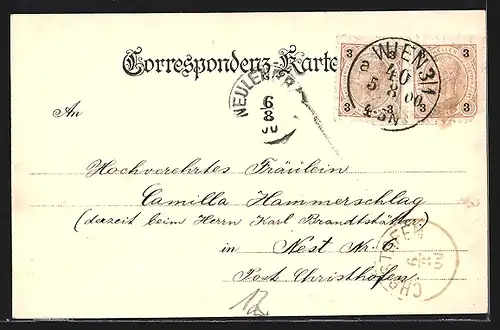 Correspondenz-Karte
3 3
3 3
WIEN 3/1
40
5 8 00
4-5N
NEULENG
6
8
00
An
Hochverehrtes Fräulein
Camilla Hammerschlag
(derzeit beim Herrn Karl Brandtstätter)
in Nest Nr. 6
Post Christhofen
CHRISTOFEN
6
8
00
12